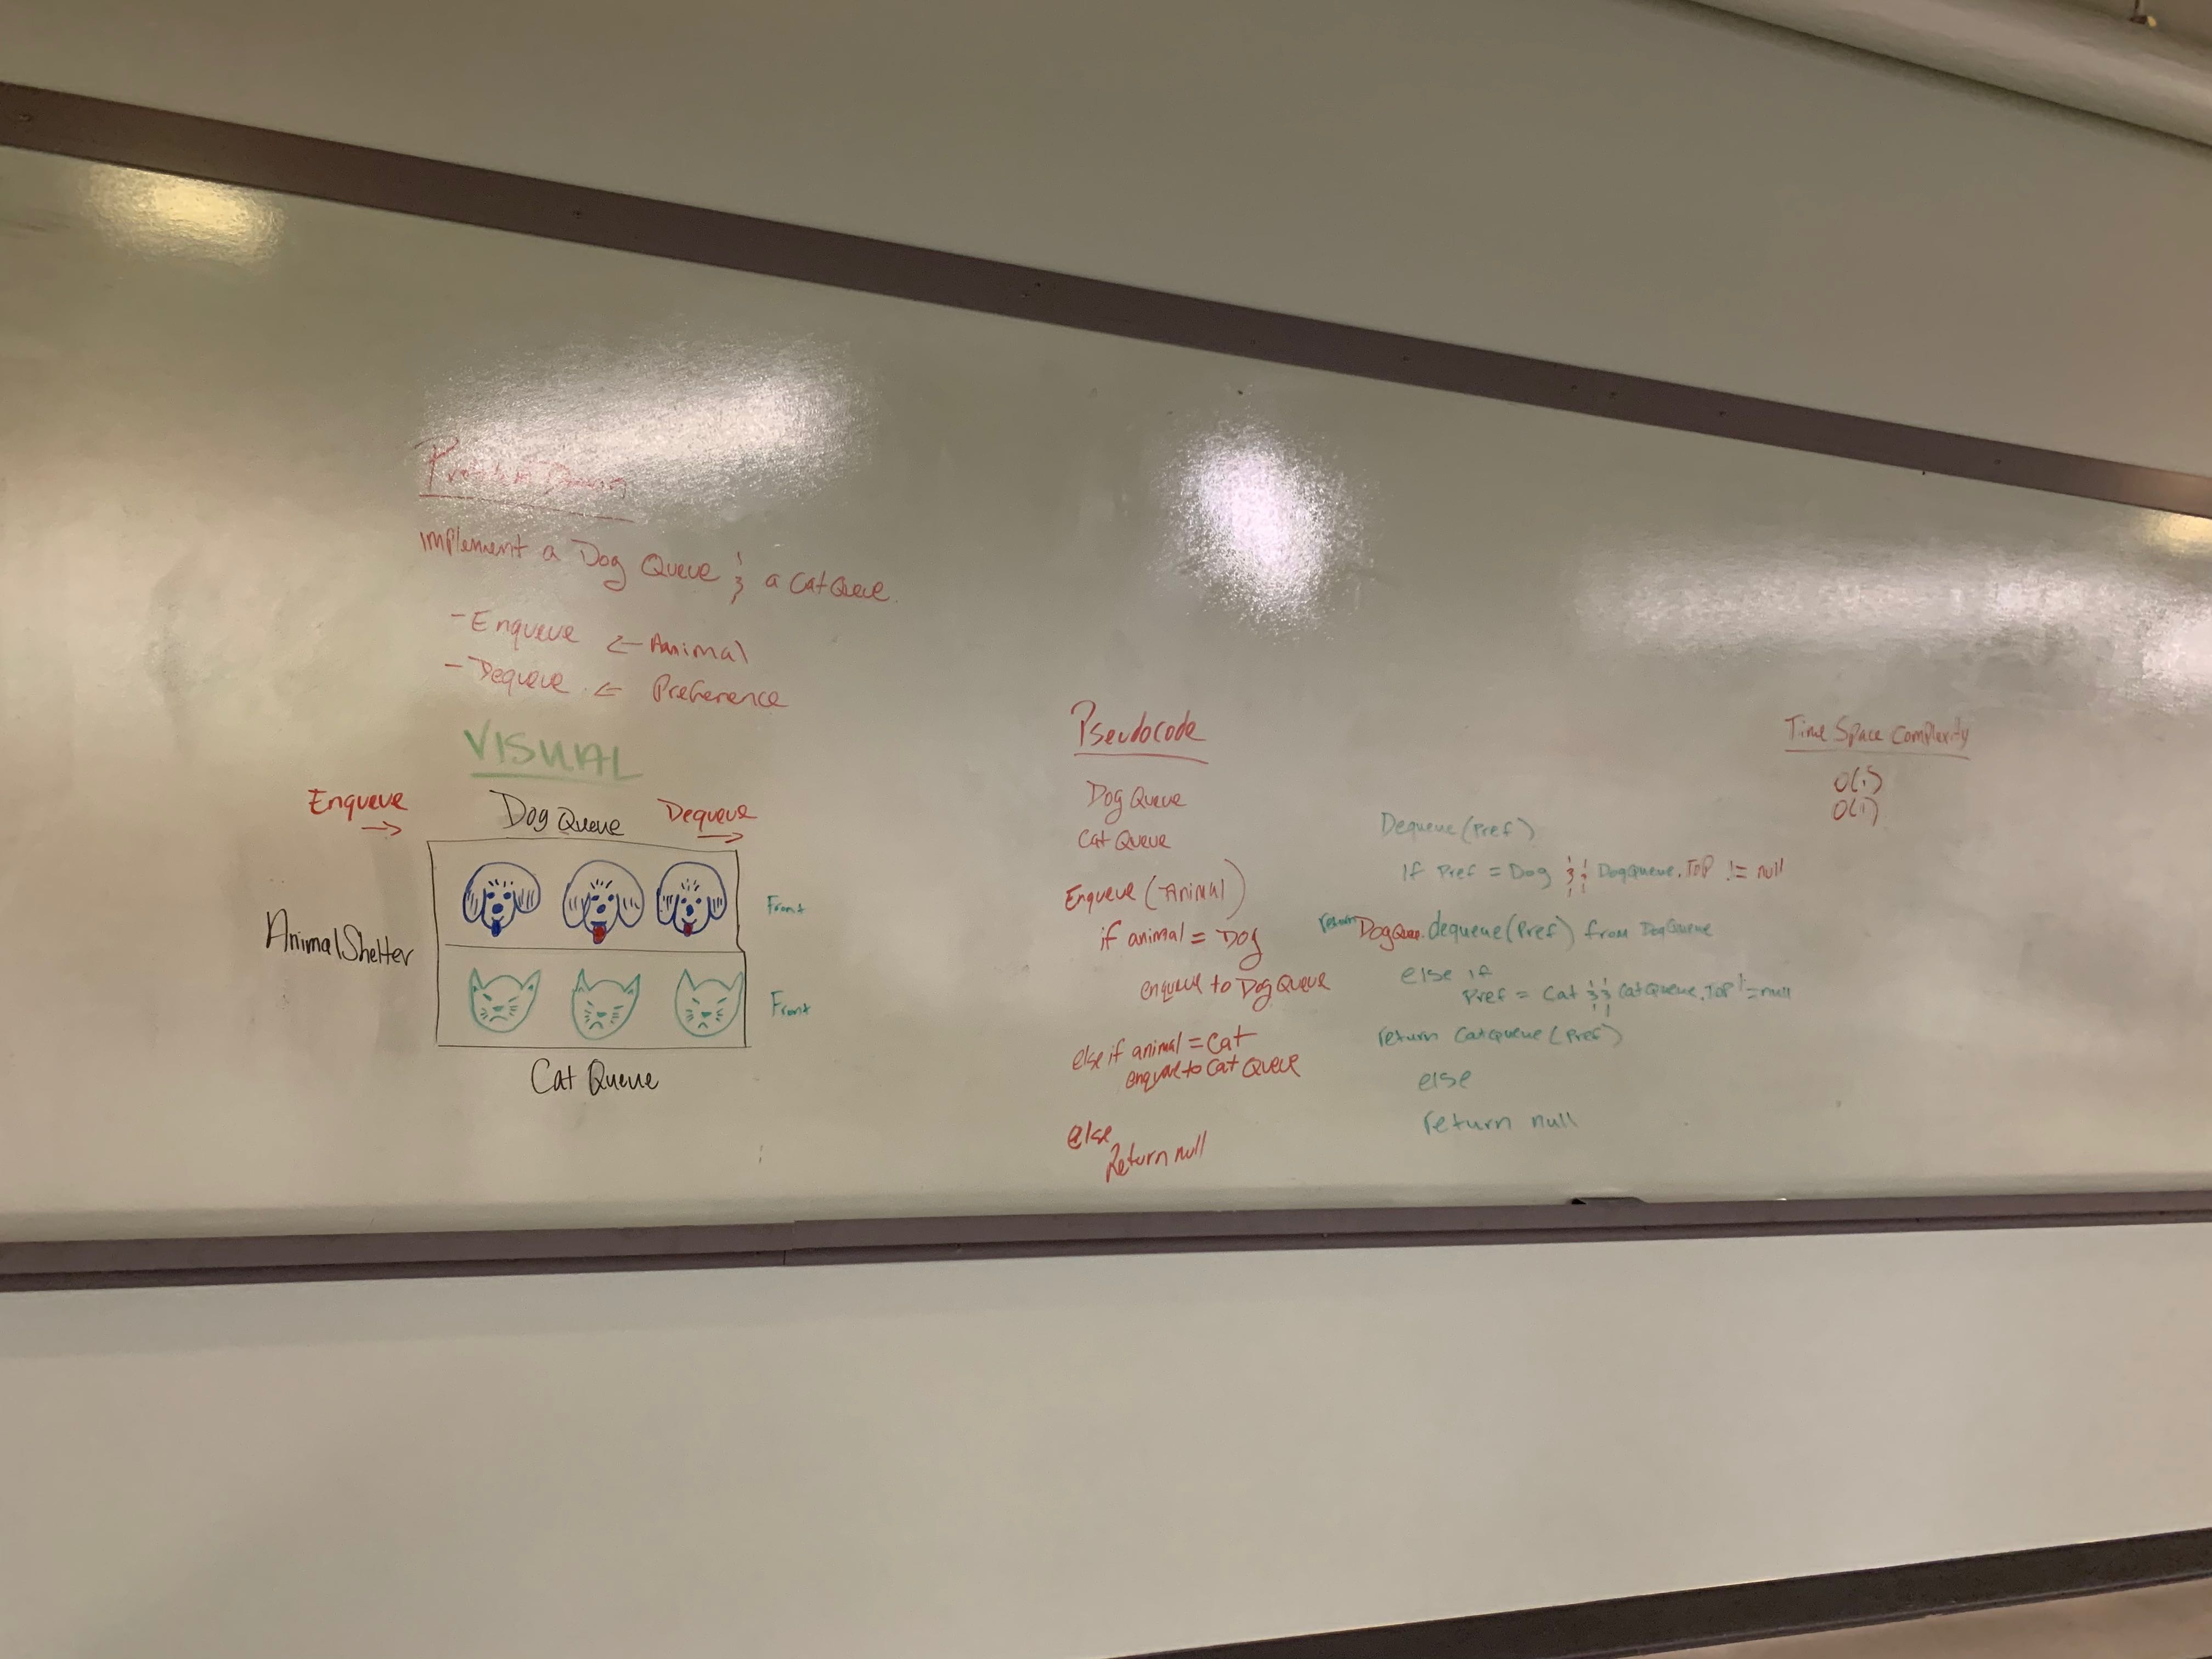 Problem Domain
Implement a Dog Queue & a Cat Queue.
- Enqueue ← Animal
- Dequeue ← Preference
VISUAL
Enqueue →
Dog Queue
Dequeue →
AnimalShelter
Front
Front
Cat Queue
Pseudocode
Dog Queue
Cat Queue
Enqueue (Animal)
if animal = Dog
enqueue to Dog Queue
else if animal = Cat
enqueue to Cat Queue
else
Return null
Dequeue (Pref)
If Pref = Dog && DogQueue.TOP != null
return DogQueue.dequeue(Pref) from DogQueue
else if
Pref = Cat && CatQueue.TOP != null
return CatQueue (Pref)
else
return null
Time Space Complexity
O(1)
O(1)